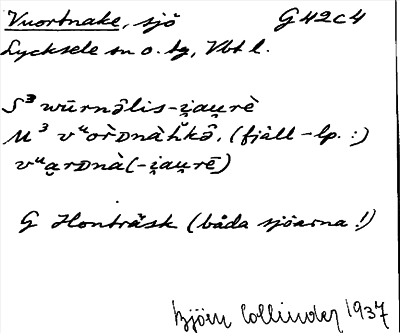 Vuortnake, sjö G42c4
Lycksele sn o. tg, Vbt l.
S³ wūrnâlis-i̯au̯rè
M³ vᵘoR̀Dnàh̆kə̂. (fjäll-lp. :)
vᵘa̮rDnà(-i̯au̯rē)
G Honträsk (båda sjöarna!)
Björn Collinder 1937